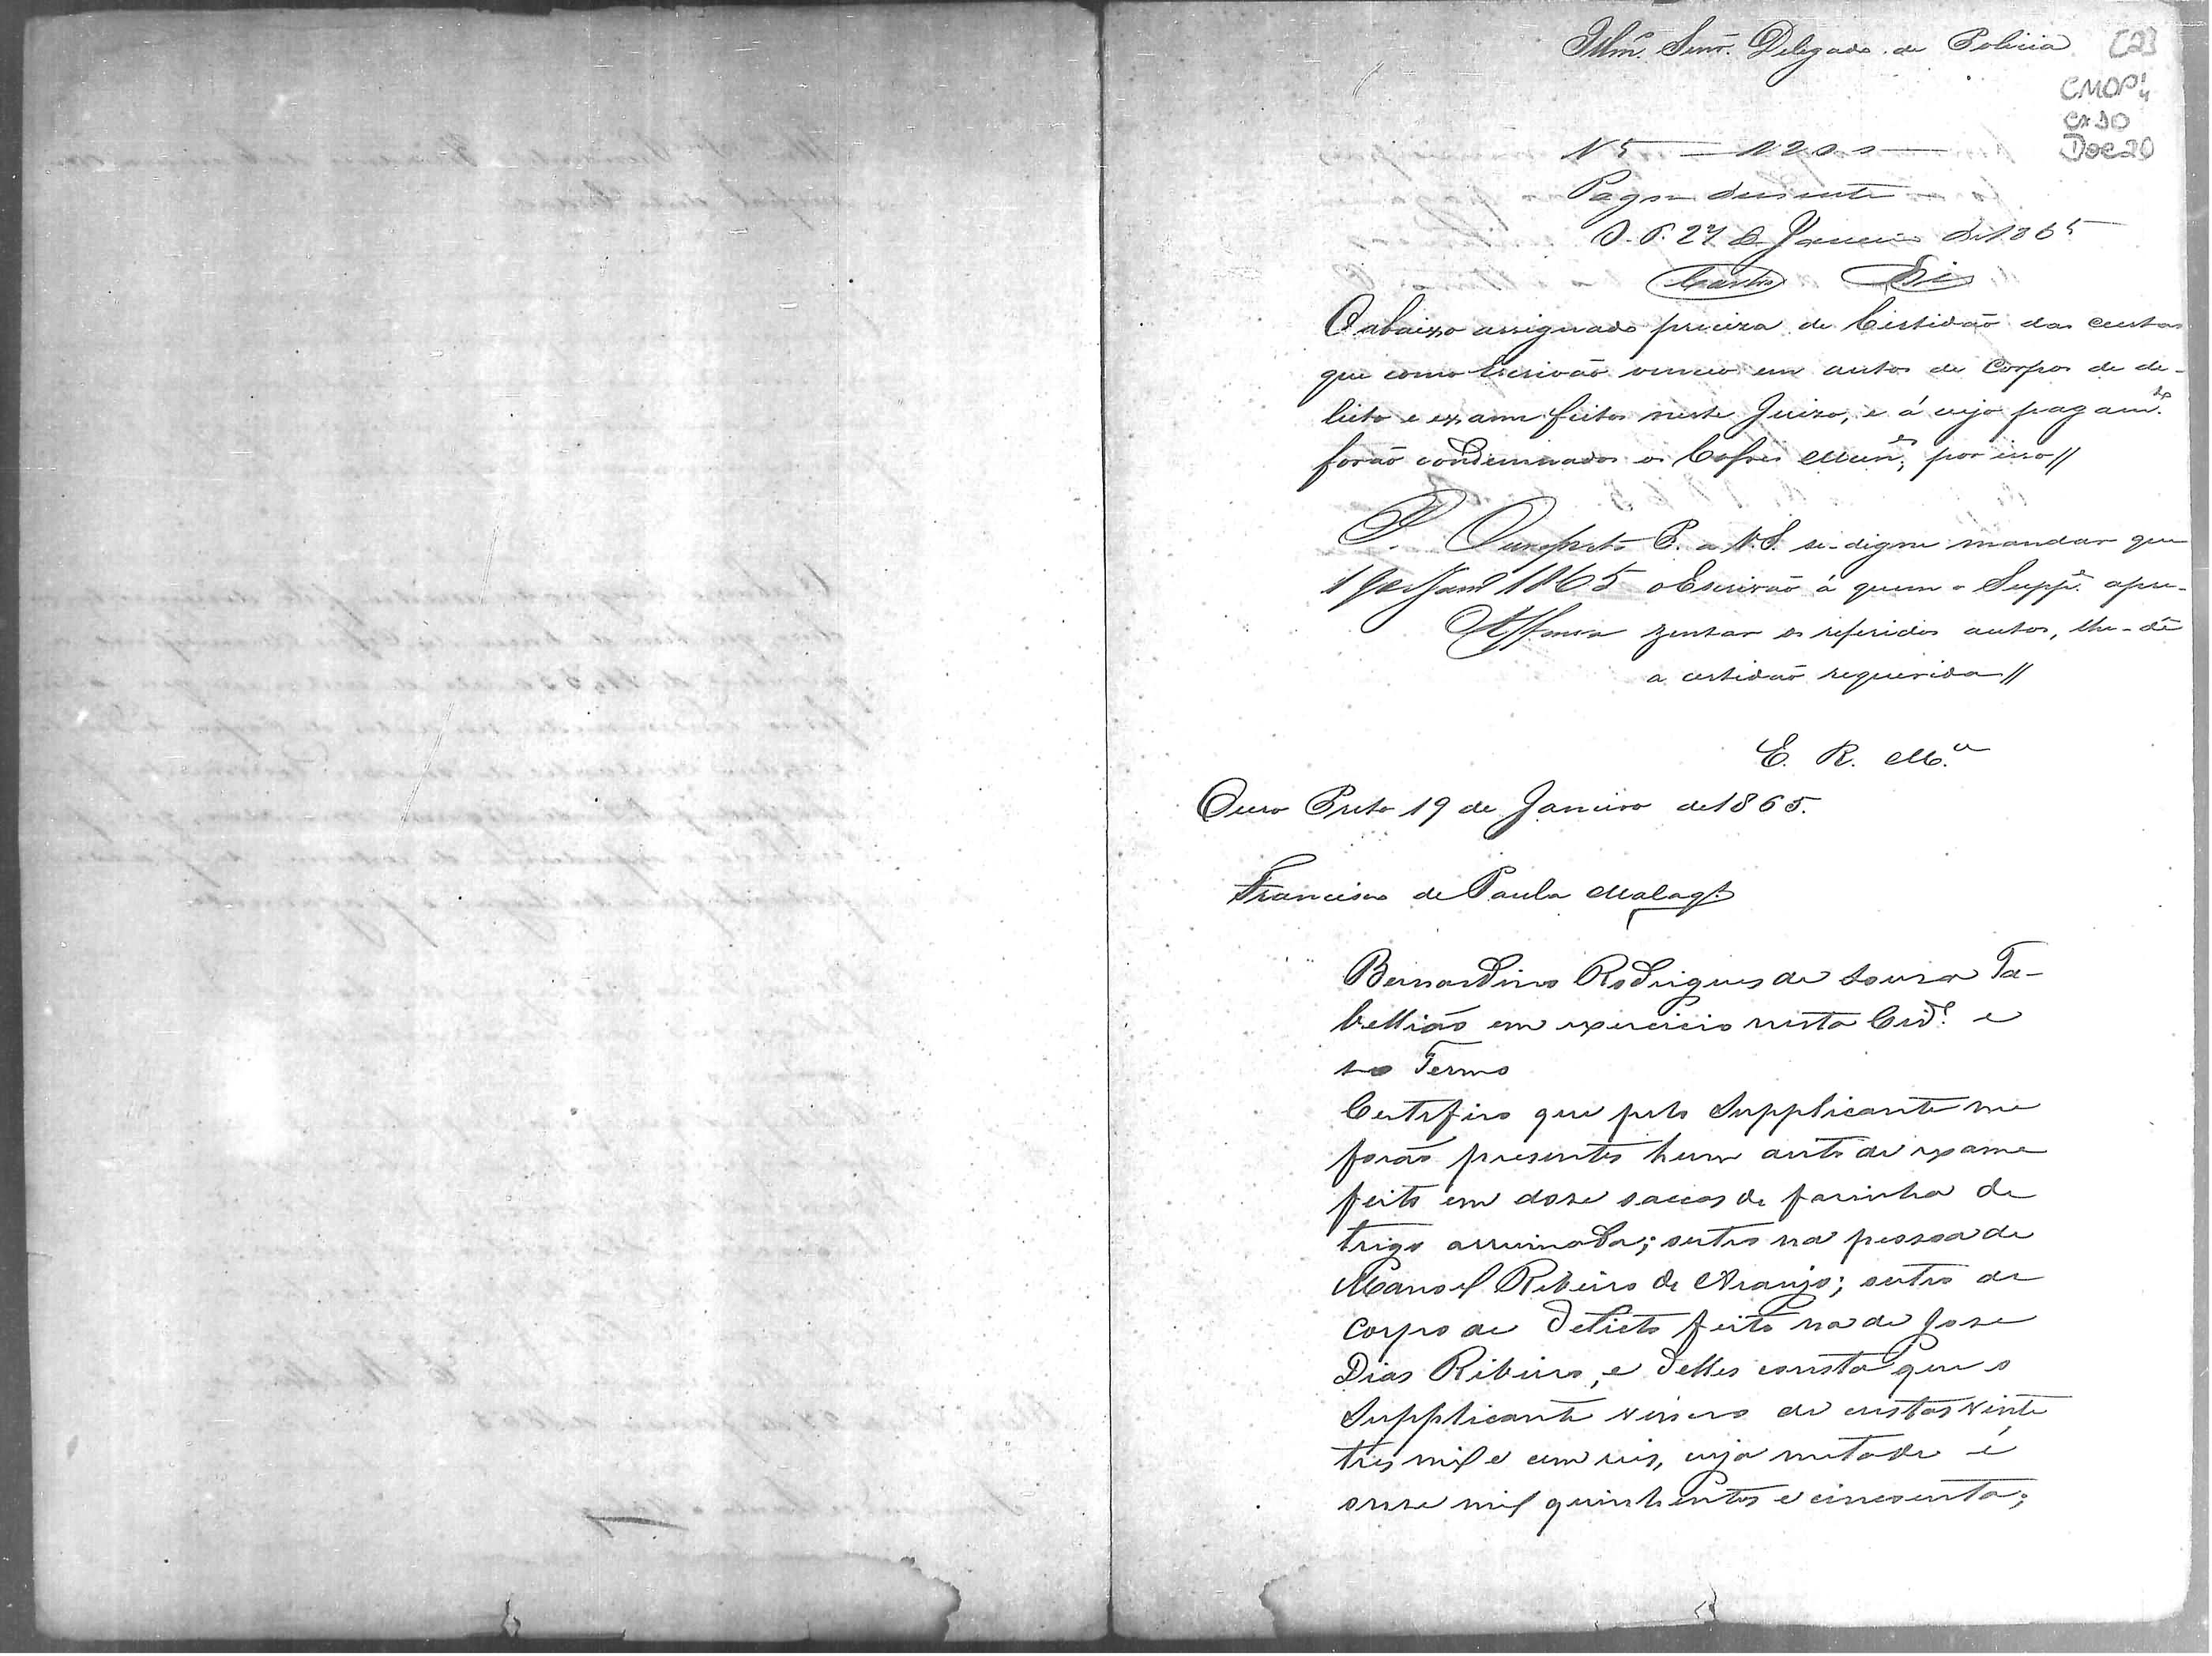 Illmº. Senr. Delegado de Policia [2]
CMOP
Cx 90
Doc 20
N 5 — N 200 —
Pagou dusentos
O. P. 27 de Janeiro de 1865
O abaixo assignado preciza de Certidão das custas
que como Escrivão venceo em autos de Corpos de de-
licto e exame feitos neste Juizo, e á cujo pagamto.
forão condemnados os Cofres Munes, por isso //
P. Ouro preto P. a V.S. se-digne mandar que
19 de Janrº 1865 o Escrivão á quem o Suppe. apre-
Affonso zentar os referidos autos, lhe-dê
a certidão requerida //
E. R. Mca
Ouro Preto 19 de Janeiro de 1865.
Francisco de Paula Malaqs.
Bernardino Rodrigues de Souza Ta-
bellião em exercicio nesta Cide. e
seo Termo
Certefico que pelo Supplicante me
forão presentes hum auto de exame
feito em dose saccas de farinha de
trigo arruinada; outro na pessoa de
Manoel Ribeiro de Araujo; outro de
Corpo de delicto feito na de Jose
Dias Ribeiro, e delles consta que o
Supplicante venceo de custas vinte
tres mil e cem reis, cuja metade é
onse mil quinhentos e cincoenta;